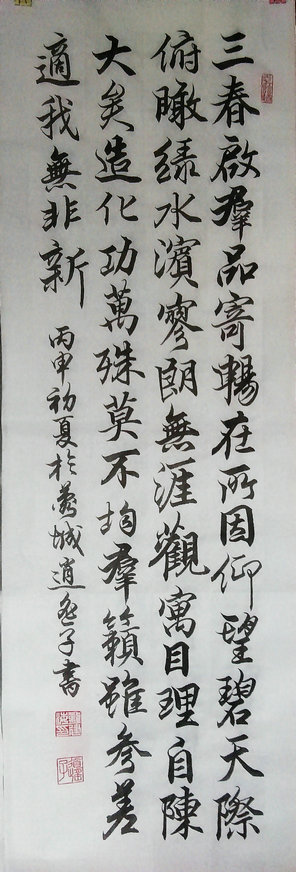 三春啟羣品寄暢在所因仰望碧天際
俯瞰綠水濱寥朗無涯觀寓目理自陳
大矣造化功萬殊莫不均羣籟雖參差
適我無非新
丙申初夏於城逍子書